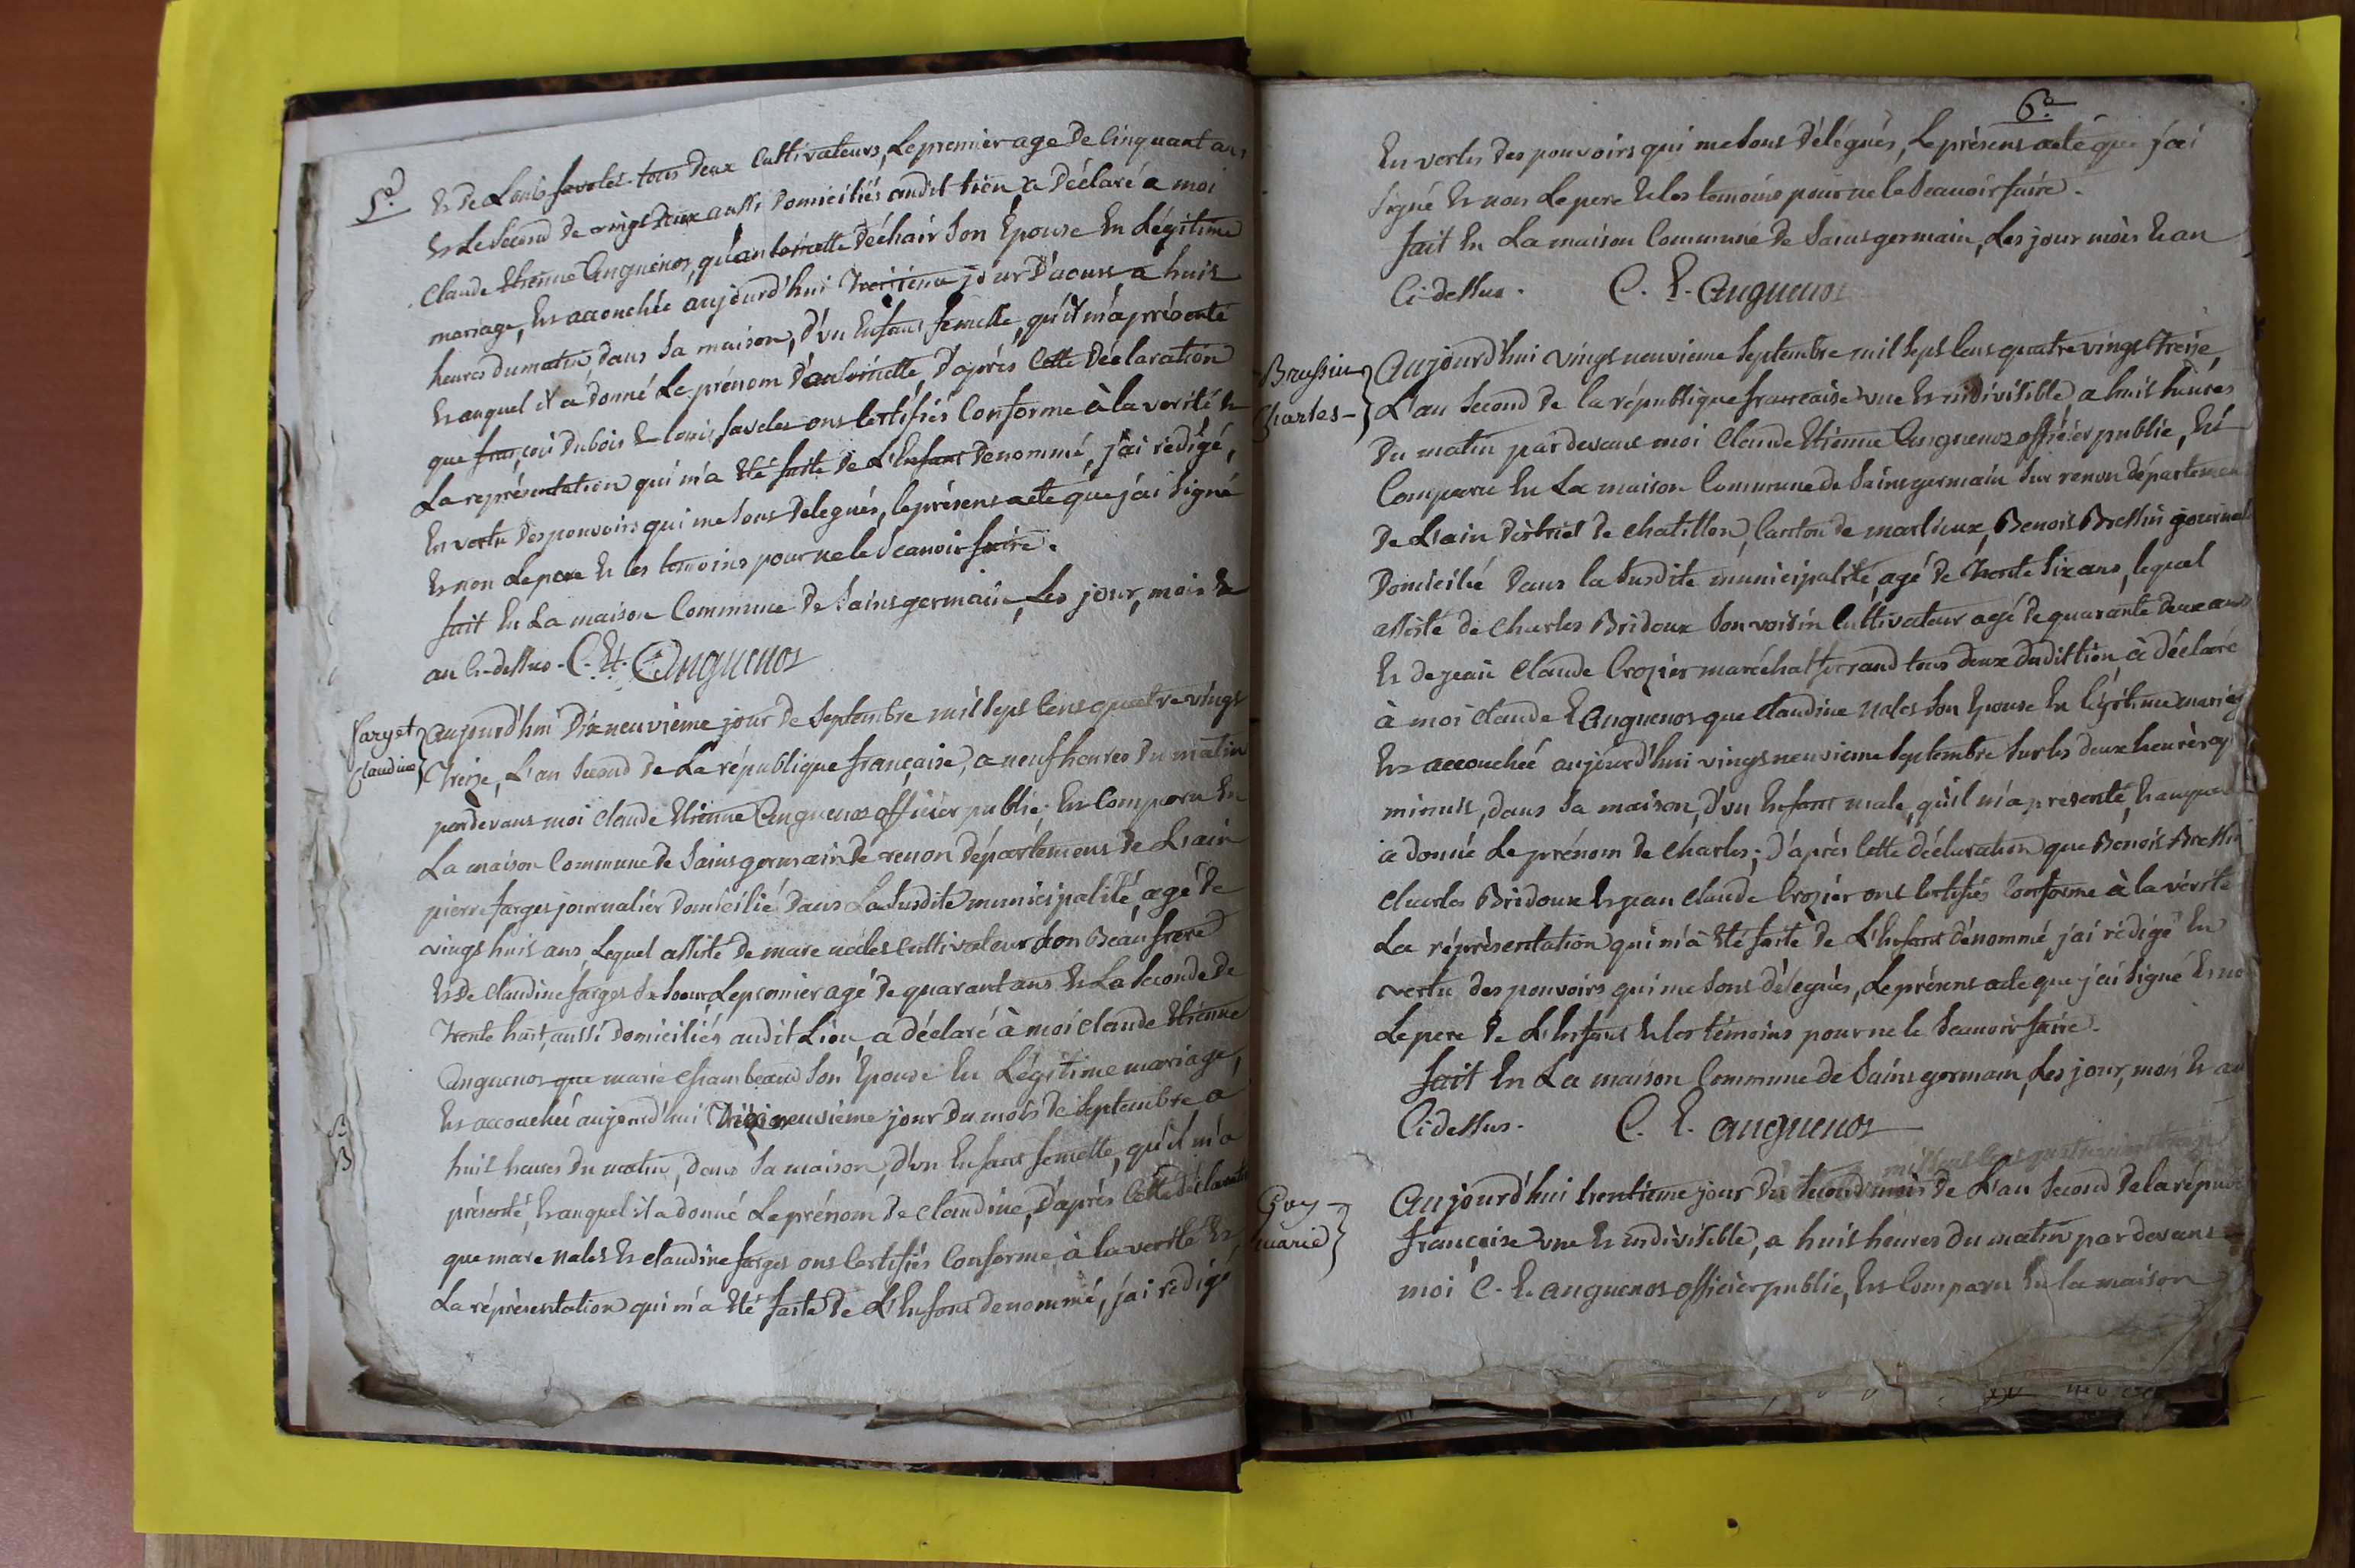 5.e
Et de Louis favolet tous deux Cultivateurs, Le premier age de Cinquant ans
Et Le Second de vingt deux aussi Domiciliés audit lieu a Déclaré a moi
Claude Etienne Anguenot, qu'antoinette Déchair Son Epouse En Légitime
mariage, Est accouchée aujourd'hui Treizieme jour D'aoust a huit
heures du matin, dans Sa maison, d'un Enfant femelle, qu'il m'a présenté
Et auquel il a donné Le prénom D'antoinette D'après Cette Déclaration
que françois Dubois Et louis favolet ont Certifiés Conforme à La verité Et
La représentation qui m'a Eté faite de L'Enfant Denommé, j'ai rédigé,
En vertu Des pouvoirs qui me Sont Delegués, le présent acte que j'ai Signé
Et non Le pere Et les temoins pour ne le Scauoir faire.
fait En La maison Commune de Saint germain, Les jour, mois Et
an Ci-dessus. C. Et. Anguenot
farget
Claudine
Aujourd'hui Dix neuvième jour de Septembre mil Sept Cent quatre vingt
Treize, L'an Second de La république française, a neuf heures du matin
pardevant moi Claude Etienne Anguenot officier public, Est Comparu En
La maison Commune de Saint germain de renon département de L'ain
pierre farget journalier Domicilié Dans La Susdite municipalité, agé de
vingt huit ans, Lequel assisté de marc nalet Cultivateur Son Beau frere
Et De Claudine farget Sa Soeur Le premier agé de quarant ans Et La Seconde de
Trente huit, aussi Domiciliés audit Lieu, a déclaré à moi Claude Etienne
Anguenot que marie Chambeaud Son Epouse En Légitime mariage,
Est accouchée aujourd'hui neuvième jour Du mois de Septembre a
huit heures Du matin, dans Sa maison, d'un Enfant femelle, qu'il m'a
présenté, Et auquel il a donné Le prénom de Claudine, D'après Cette déclaration
que marc nalet Et Claudine farget ont Certifiés Conforme à la verité Et
La réprésentation qui m'a Eté faite De L'Enfant denommé, j'ai rédigé
6.e
En vertu Des pouvoirs qui me Sont Délégués, Le présent acte que j'ai
Signé Et non Le pere Et les temoins pour ne le Scauoir faire.
fait En La maison Commune De Saint germain, Les jour mois Et an
Ci-dessus. C. E. Anguenot
Bressin
Charles
Aujourd'hui vingt neuvieme Septembre mil Sept Cent quatre vingt Treize,
L'an Second de la république française une Et indivisible a huit heures
Du matin pardevant moi Claude Etienne Anguenot officier public, Est
Comparu En La maison Commune de Saint germain Sur renon départemen
De L'ain District de Chatillon, Canton de marlieux, Benoit Bressin journal
Domicilié Dans la Susdite municipalité, agé de Trente Six ans, lequel
assisté de Charles Bridoux Son voisin Cultivateur agé de quarante deux ans
Et de jean Claude Crozier maréchal ferrand tous deux dudit lieu, à déclaré
à moi Claude E Anguenot que Claudine nalet Son Epouse En légitime mariag
Est accouchée aujourd'hui vingt neuvieme Septembre Sur les deux heures a
minuit, dans Sa maison, d'un Enfant male, qu'il m'a presenté, Et auquel
a donné Le prénom de Charles; d'après Cette déclaration que Benoit Bressin
Charles Bridoux Et jean Claude Crozier ont Certifiés Conforme à la vérité
La réprésentation qui m'à Eté faite de L'Enfant dénommé j'ai rédigé En
vertu des pouvoirs qui me Sont délegués, Le présent acte que j'ai Signé Et no
Le pere De L'Enfant Et les témoins pour ne le Scauoir faire.
fait En La maison Commune de Saint germain, Les jour, mois Et an
Ci dessus. C. E. Anguenot
mil Sept Cent quatre vingt treize
Goy
marie
Aujourd'hui trentieme jour Du Second mois de L'an Second De la répub
française une Et indivisible, a huit heures du matin par devant
moi C. E. Anguenot officier public, Est Comparu En la maison